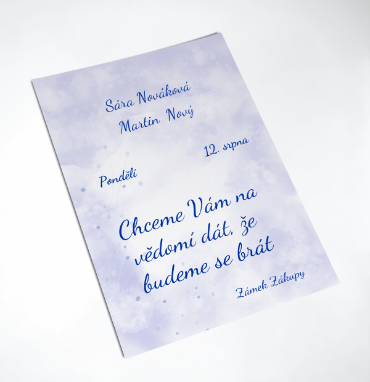 Sára Nováková
Martin Nový
12. srpna
Pondělí
Chceme Vám na
vědomí dát, že
budeme se brát
Zámek Zákupy